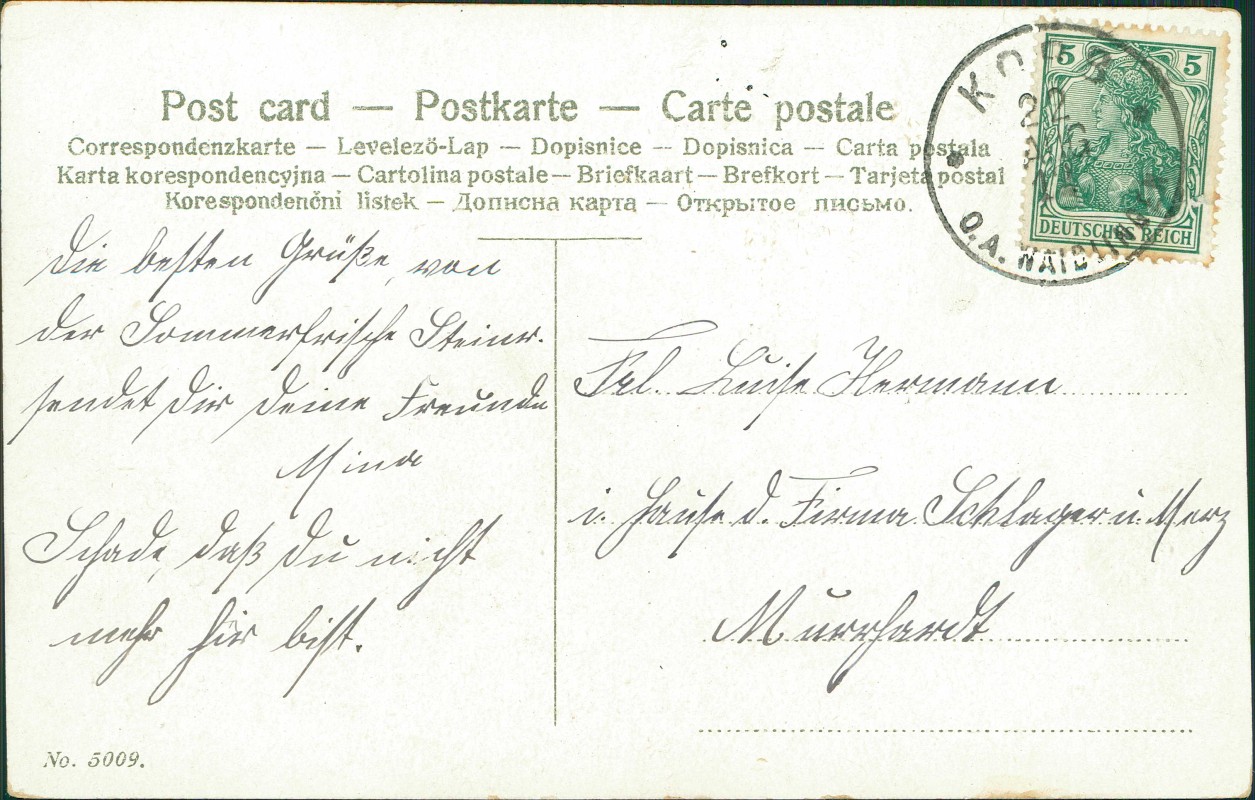 Post card — Postkarte — Carte postale
Correspondenzkarte — Levelező-Lap — Dopisnice — Dopisnica — Carta postala
Karta korespondencyjna — Cartolina postale — Briefkaart — Brefkort — Tarjeta postal
Korespondenčni listek — Дописна карта — Открытое письмо.
KORB
O.A. WAIBLINGEN
5 5
DEUTSCHES REICH
Die besten Grüße von
der Sommerfrische Steinr.
sendet Dir Deine Freundin
Mina
Schade, daß Du nicht
mehr hier bist.
Frl. Luise Hermann
i. Hause d. Firma Schlager u. Merz
Murrhardt
No. 5009.